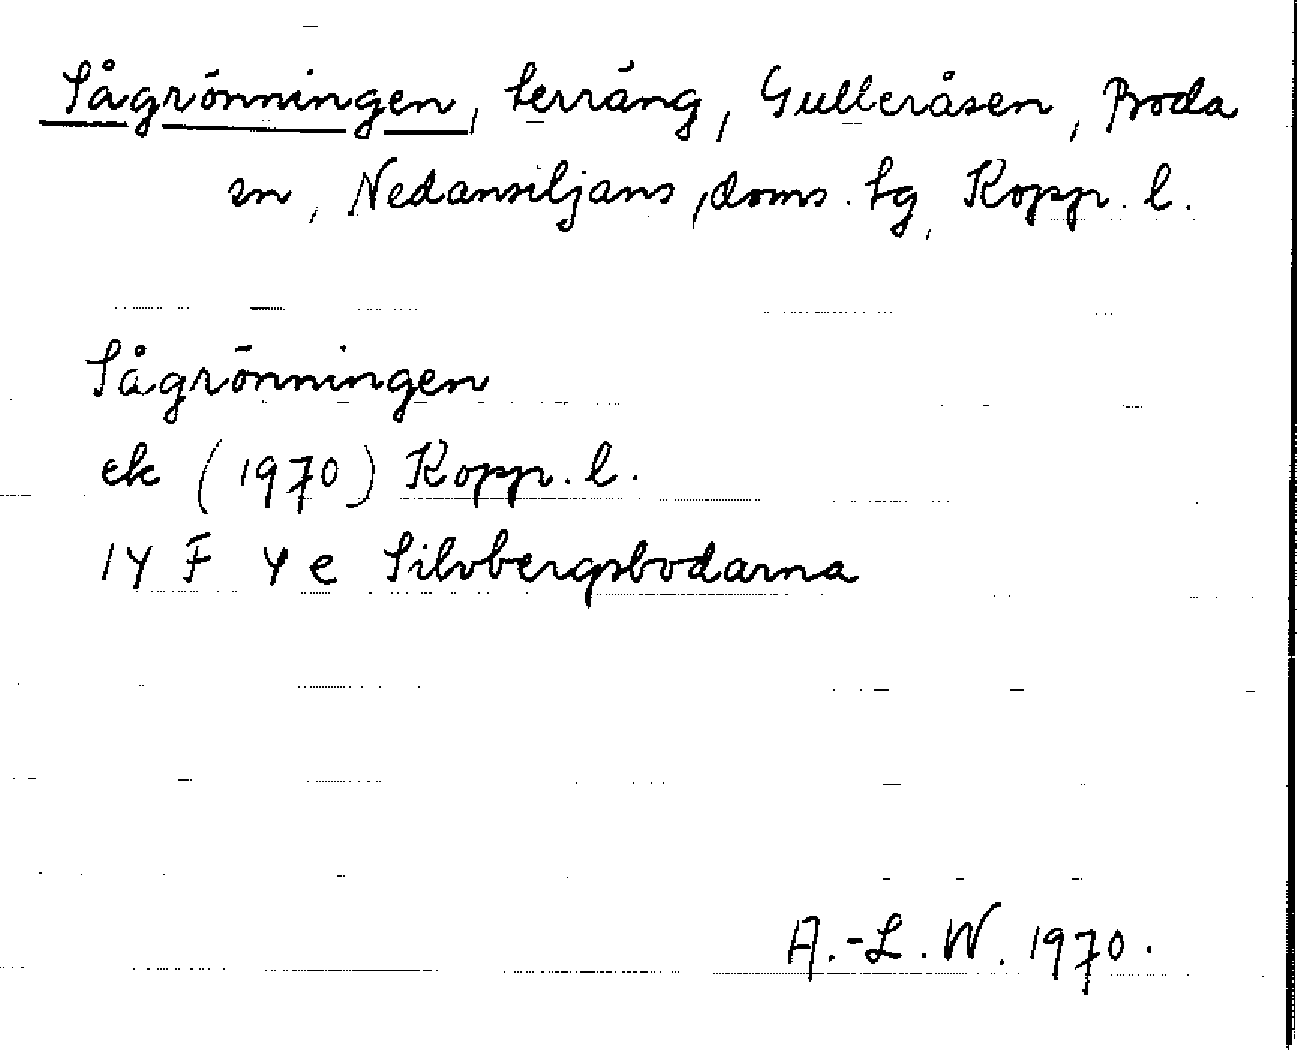 Sågrönningen, terräng, Gulleråsen, Boda
sn, Nedansiljans, doms. tg, Kopp. l.
Sågrönningen
ek (1970) Kopp. l.
14 F 4 e Silvbergsbodarna
A.-L. W. 1970.